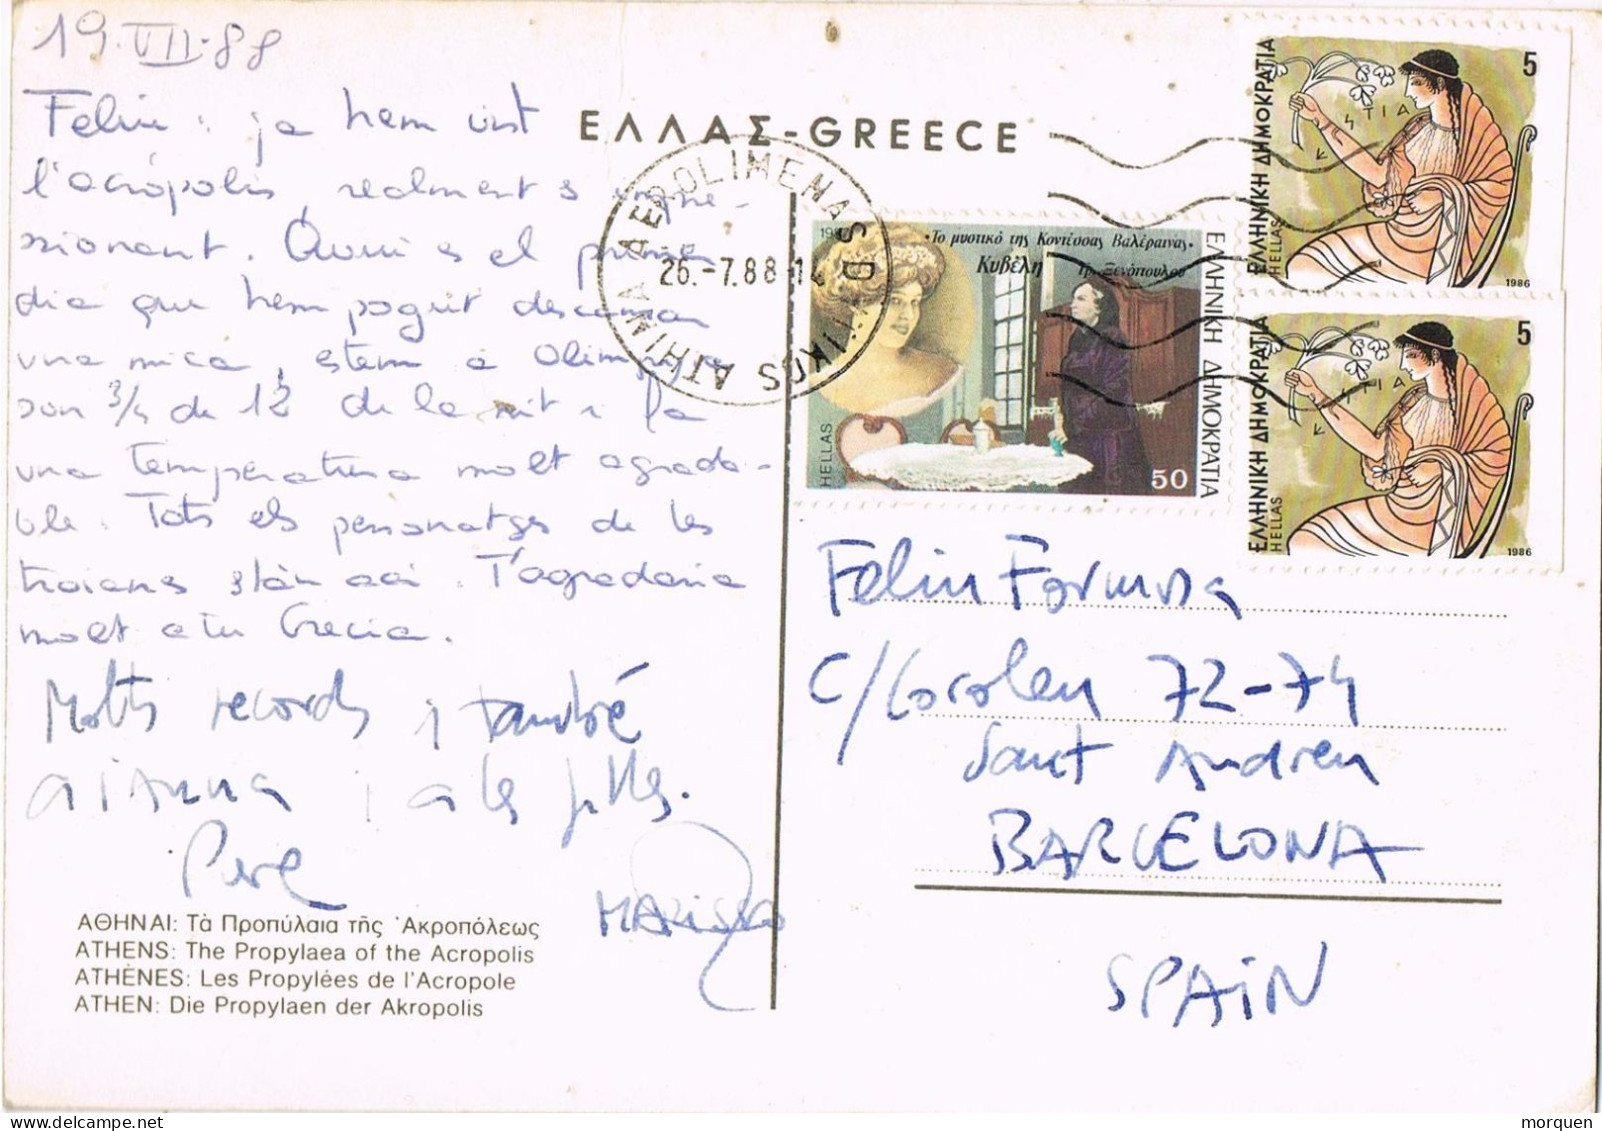 19.VII.88
Feliu: ja hem vist
l'acròpolis, realment és impre-
sionant. Avui és el primer
dia que hem pogut descansar
una mica, estem a Olimpia
són 3/4 de 12 de la nit i fa
una temperatura molt agrada-
ble. Tots els personatges de les
troianes stàn aci. T'agradaria
molt a tu Grecia.
Molts records i també
a l'Anna i a les filles.
Pere
ΑΘΗΝΑΙ: Τὰ Προπύλαια τῆς Ἀκροπόλεως
ATHENS: The Propylaea of the Acropolis
ATHÈNES: Les Propylées de l'Acropole
ATHEN: Die Propylaen der Akropolis
ΕΛΛΑΣ-GREECE
AEROLIMENAS
ATHINA
26.-7.88
«Το μυστικό της Κοντέσσας Βαλέραινας»
Κυβέλη
Γρ. Ξενόπουλου
ΕΛΛΗΝΙΚΗ ΔΗΜΟΚΡΑΤΙΑ
HELLAS
50
ΕΛΛΗΝΙΚΗ ΔΗΜΟΚΡΑΤΙΑ
HELLAS
5
1986
ΕΛΛΗΝΙΚΗ ΔΗΜΟΚΡΑΤΙΑ
HELLAS
5
1986
Feliu Formosa
C/Coroleu 72-74
Sant Andreu
BARCELONA
SPAIN
morquen